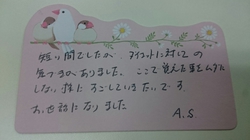 短い間でしたが、ダイエットに対しての
気づきがありました。ここで覚えた事をムダに
しない様にすごしていきたいです。
お世話になりました
A.S